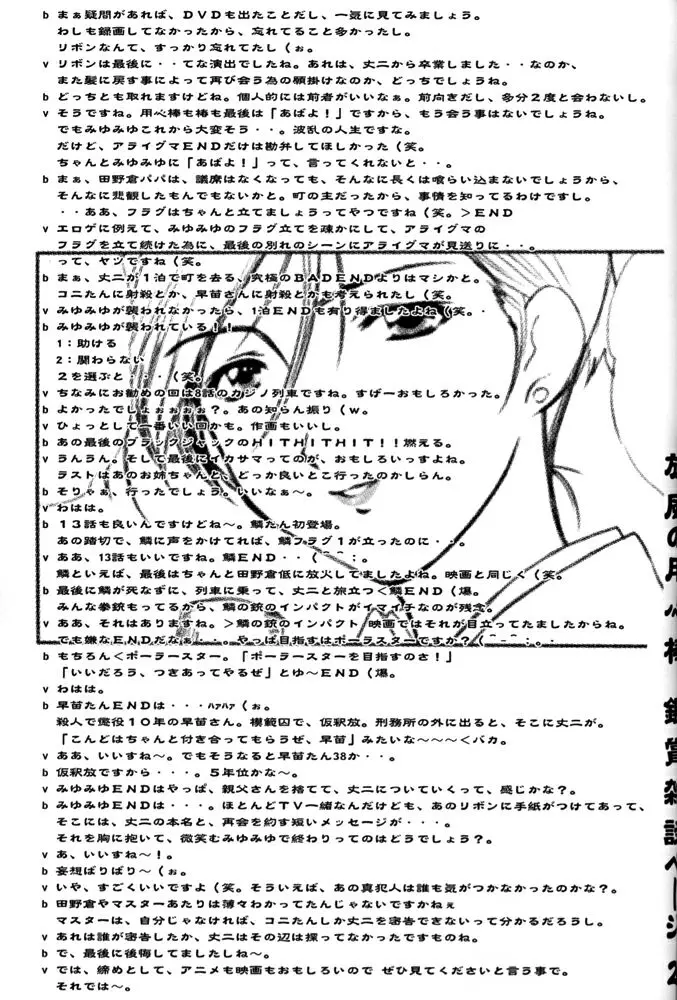 b まぁ疑問があれば、DVDも出たことだし、一気に見てみましょう。
わしも録画してなかったから、忘れてること多かったし。
リボンなんて、すっかり忘れてたし(ぉ。
v リボンは最後に・・てな演出でしたね。あれは、丈二から卒業しました・・なのか、
また髪に戻す事によって再び会う為の願掛けなのか、どっちでしょうね。
b どっちとも取れますけどね。個人的には前者がいいなぁ。前向きだし、多分2度と会わないし。
v そうですね。用心棒も椿も最後は「あばよ!」ですから、もう会う事はないでしょうね。
でもみゆみゆこれから大変そう・・。波乱の人生ですな。
だけど、アライグマENDだけは勘弁してほしかった(笑。
ちゃんとみゆみゆに「あばよ!」って、言ってくれないと・・。
b まぁ、田野倉パパは、議席はなくなっても、そんなに長くは喰らい込まないでしょうから、
そんなに悲観したもんでもないかと。町の主だったから、事情を知ってるわけですし。
・・ああ、フラグはちゃんと立てましょうってやつですね(笑。>END
v エロゲに例えて、みゆみゆのフラグ立てを疎かにして、アライグマの
フラグを立て続けた為に、最後の別れのシーンにアライグマが見送りに・・。
って、ヤツですね(笑。
b まぁ、丈二が1泊で町を去る、究極のBADENDよりはマシかと。
コニたんに射殺とか、早苗さんに射殺とかも考えられたし(笑。
v みゆみゆが襲われなかったら、1泊ENDも有り得ましたよね(笑。・
b みゆみゆが襲われている!!
1:助ける
2:関わらない
2を選ぶと・・・(笑。
v ちなみにお勧めの回は8話のカジノ列車ですね。すげーおもしろかった。
b よかったでしょぉぉぉぉ?。あの知らん振り(w。
v ひょっとして一番いい回かも。作画もいいし。
b あの最後のブラックジャックのHITHITHIT!!燃える。
v うんうん。そして最後にイカサマってのが、おもしろいっすよね。
ラストはあのお姉ちゃんと、どっか良いとこ行ったのかしらん。
b そりゃぁ、行ったでしょう。いいなぁ~。
v わはは。
b 13話も良いんですけどね~。鱗たん初登場。
あの踏切で、鱗に声をかけてれば、鱗フラグ1が立ったのに・・。
v ああ、13話もいいですね。鱗END・・(⌒-⌒;。
鱗といえば、最後はちゃんと田野倉低に放火してましたよね。映画と同じく(笑。
b 最後に鱗が死なずに、列車に乗って、丈二と旅立つ鱗END(爆。
みんな拳銃もってるから、鱗の銃のインパクトがイマイチなのが残念。
v ああ、それはありますね。>鱗の銃のインパクト 映画ではそれが目立ってたましたからね。
でも嫌なENDだなぁ・・。やっぱ目指すはポーラスターですか?(⌒-⌒;。・
b もちろん<ポーラスター。「ポーラスターを目指すのさ!」
「いいだろう、つきあってやるぜ」とゆ~END(爆。
v わはは。
b 早苗たんENDは・・・ハァハァ(ぉ。
殺人で懲役10年の早苗さん。模範囚で、仮釈放。刑務所の外に出ると、そこに丈二が。
「こんどはちゃんと付き合ってもらうぜ、早苗」みたいな~~~<バカ。
v ああ、いいすね~。でもそうなると早苗たん38か・・。
b 仮釈放ですから・・・。5年位かな~。
v みゆみゆENDはやっぱ、親父さんを捨てて、丈二についていくって、感じかな?。
b みゆみゆENDは・・・。ほとんどTV一緒なんだけども、あのリボンに手紙がつけてあって、
そこには、丈二の本名と、再会を約す短いメッセージが・・・。
それを胸に抱いて、微笑むみゆみゆで終わりってのはどうでしょう?。
v あ、いいすね~!。
b 妄想ばりばり~(ぉ。
v いや、すごくいいですよ(笑。そういえば、あの真犯人は誰も気がつかなかったのかな?。
b 田野倉やマスターあたりは薄々わかってたんじゃないですかねぇ
マスターは、自分じゃなければ、コニたんしか丈二を密告できないって分かるだろうし。
v あれは誰が密告したか、丈二はその辺は探ってなかったですものね。
b で、最後に後悔してましたしね~。
v では、締めとして、アニメも映画もおもしろいので ぜひ見てくださいと言う事で。
それでは~。
放風の用心棒 鑑賞雑談ページ 2